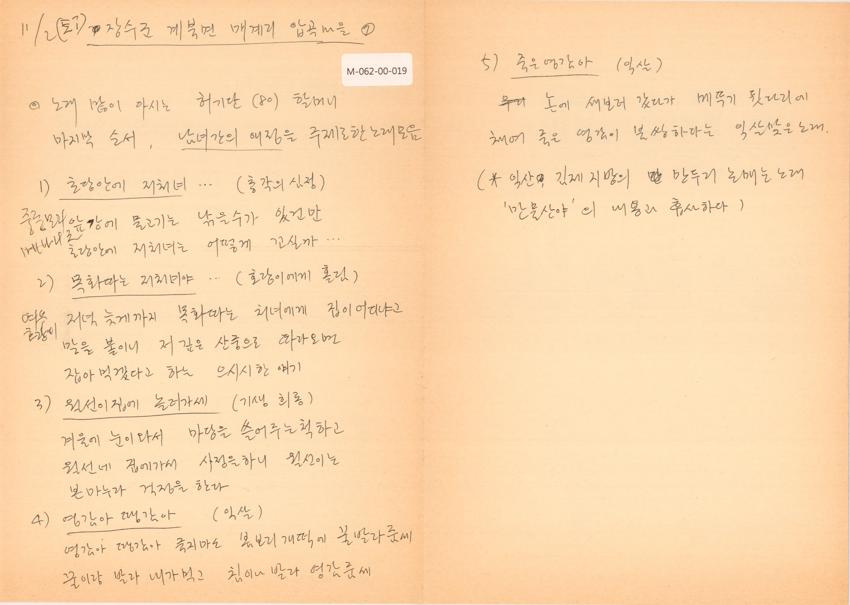 11/2 (토) 장수군 계북면 매계리 압곡마을 ①
M-062-00-019
◎ 노래 많이 아시는 허기단 (80) 할머니
마지막 순서, 남녀간의 애정을 주제로한 노래모음
1) 초당안에 저처녀 … (총각의 심정)
앞강에 물고기는 낚을수가 있건만
초당안에 저처녀는 어떻게 꼬실까 …
2) 목화따는 저처녀야 … (호랑이에게 홀림)
저녁 늦게까지 목화따는 처녀에게 집이 어디냐고
말을 붙이니 저 깊은 산중으로 따라오면
잡아먹겠다고 하는 으시시한 얘기
3) 월선이집에 놀러가세 (기생 희롱)
겨울에 눈이와서 마당을 쓸어주는척하고
월선네 집에가서 사정을하니 월선이는
본마누라 걱정을 한다
4) 영감아 땡감아 (익살)
영감아 땡감아 죽지마소 봄보리개떡에 꿀발라줌세
꿀이랑 발라 내가먹고 침이나 발라 영감줌세
5) 죽은영감아 (익살)
논에 새보러 갔다가 메뚜기 뒷다리에
채여 죽은 영감이 불쌍하다는 익살맞은 노래.
(* 익산, 김제 지방의 만두리 논매는노래
'만물산야'의 내용과 흡사하다)